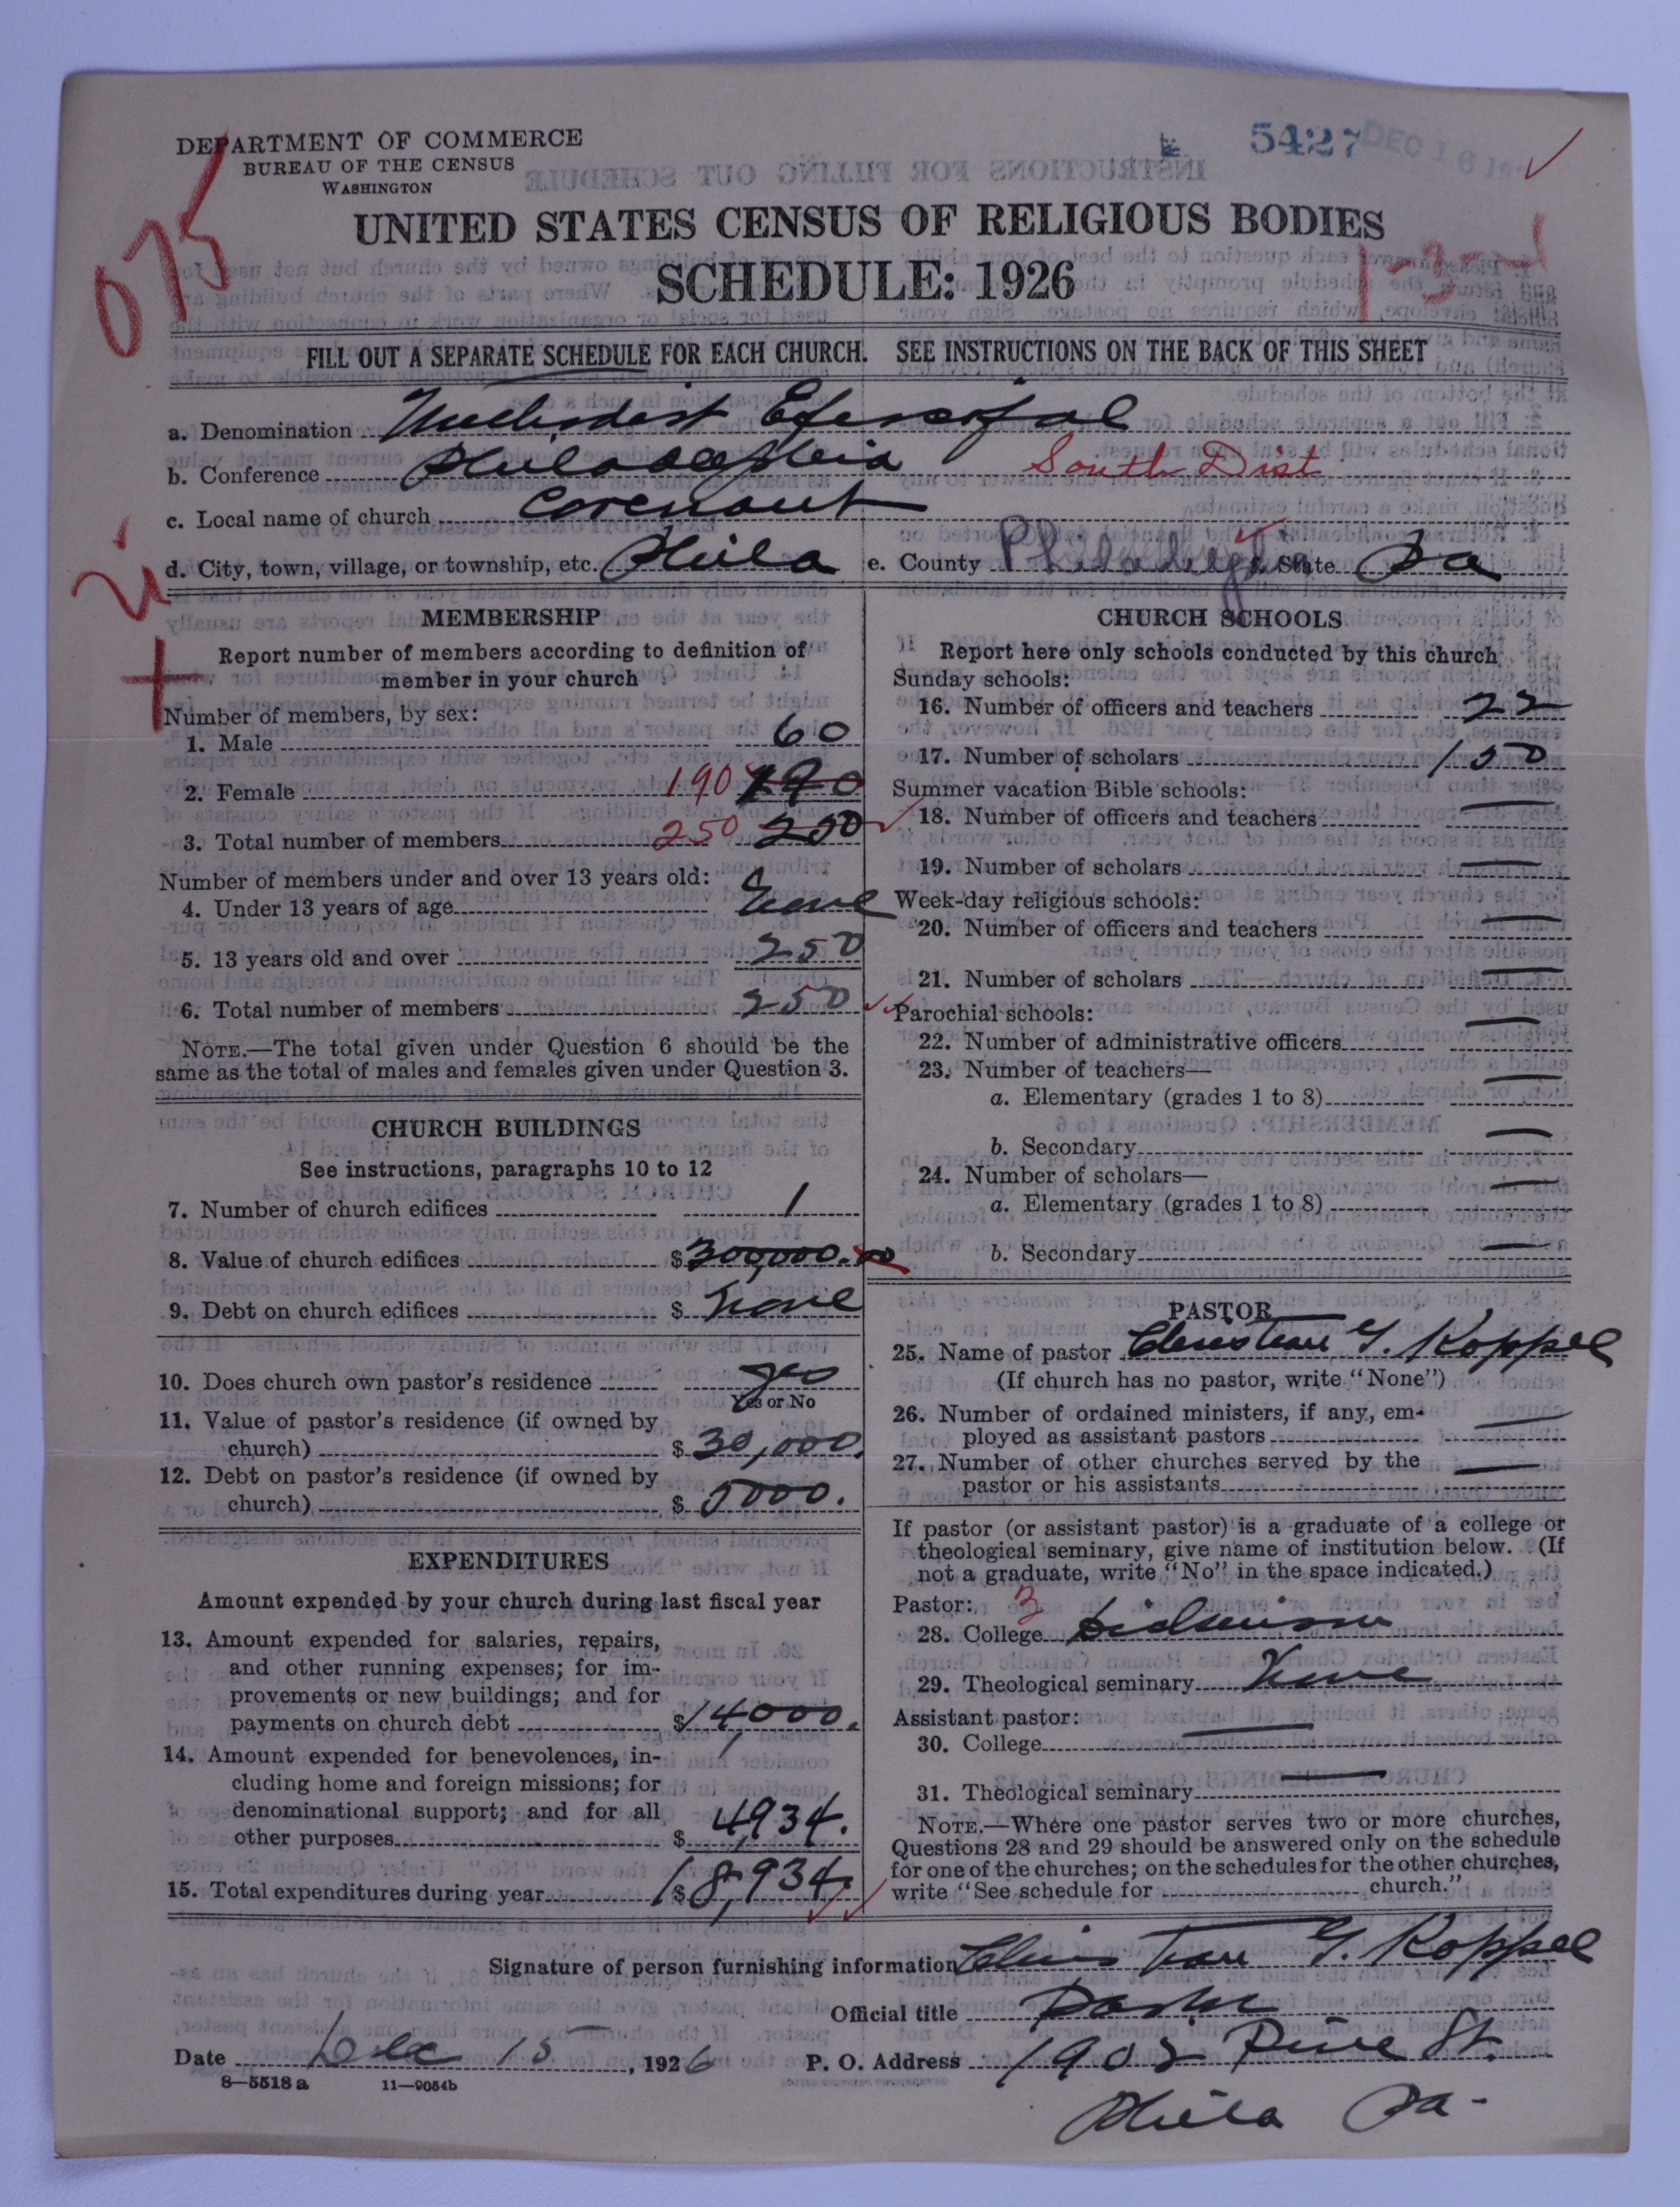 DEPARTMENT OF COMMERCE
BUREAU OF THE CENSUS
WASHINGTON
5427 DEC 16
075
UNITED STATES CENSUS OF RELIGIOUS BODIES
SCHEDULE: 1926
1-3-1
FILL OUT A SEPARATE SCHEDULE FOR EACH CHURCH. SEE INSTRUCTIONS ON THE BACK OF THIS SHEET
a. Denomination Methodist Episcopal
b. Conference Philadelphia South Dist
c. Local name of church Covenant
d. City, town, village, or township, etc. Phila e. County Philadelphia State Pa
MEMBERSHIP
Report number of members according to definition of
member in your church
Number of members, by sex:
1. Male 60
2. Female 190 190
3. Total number of members 250 250
Number of members under and over 13 years old:
4. Under 13 years of age None
5. 13 years old and over 250
6. Total number of members 250
NOTE.—The total given under Question 6 should be the
same as the total of males and females given under Question 3.
CHURCH BUILDINGS
See instructions, paragraphs 10 to 12
7. Number of church edifices 1
8. Value of church edifices $ 300,000.00
9. Debt on church edifices $ None
10. Does church own pastor's residence yes
Yes or No
11. Value of pastor's residence (if owned by
church) $ 30,000.
12. Debt on pastor's residence (if owned by
church) $ 5000.
EXPENDITURES
Amount expended by your church during last fiscal year
13. Amount expended for salaries, repairs,
and other running expenses; for im-
provements or new buildings; and for
payments on church debt $ 14,000.
14. Amount expended for benevolences, in-
cluding home and foreign missions; for
denominational support; and for all
other purposes $ 4,934.
15. Total expenditures during year $ 18,934.
CHURCH SCHOOLS
Report here only schools conducted by this church
Sunday schools:
16. Number of officers and teachers 22
17. Number of scholars 150
Summer vacation Bible schools:
18. Number of officers and teachers —
19. Number of scholars —
Week-day religious schools:
20. Number of officers and teachers —
21. Number of scholars —
Parochial schools:
22. Number of administrative officers —
23. Number of teachers—
a. Elementary (grades 1 to 8) —
b. Secondary —
24. Number of scholars—
a. Elementary (grades 1 to 8) —
b. Secondary —
PASTOR
25. Name of pastor Christian G. Koppel
(If church has no pastor, write "None")
26. Number of ordained ministers, if any, em-
ployed as assistant pastors —
27. Number of other churches served by the
pastor or his assistants —
If pastor (or assistant pastor) is a graduate of a college or
theological seminary, give name of institution below. (If
not a graduate, write "No" in the space indicated.)
Pastor: 3
28. College Dickinson
29. Theological seminary None
Assistant pastor:
30. College —
31. Theological seminary —
NOTE.—Where one pastor serves two or more churches,
Questions 28 and 29 should be answered only on the schedule
for one of the churches; on the schedules for the other churches,
write "See schedule for church."
Signature of person furnishing information Christian G. Koppel
Official title Pastor
Date Dec 15, 1926 P. O. Address 1905 Pine St.
8—5518 a 11—9054b
Phila Pa.